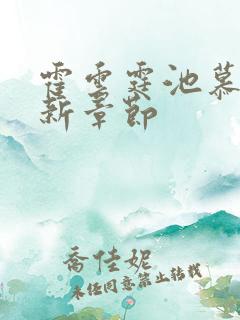 霍雲霆池慕
新章節
喬佳妮
未經同意禁止轉載